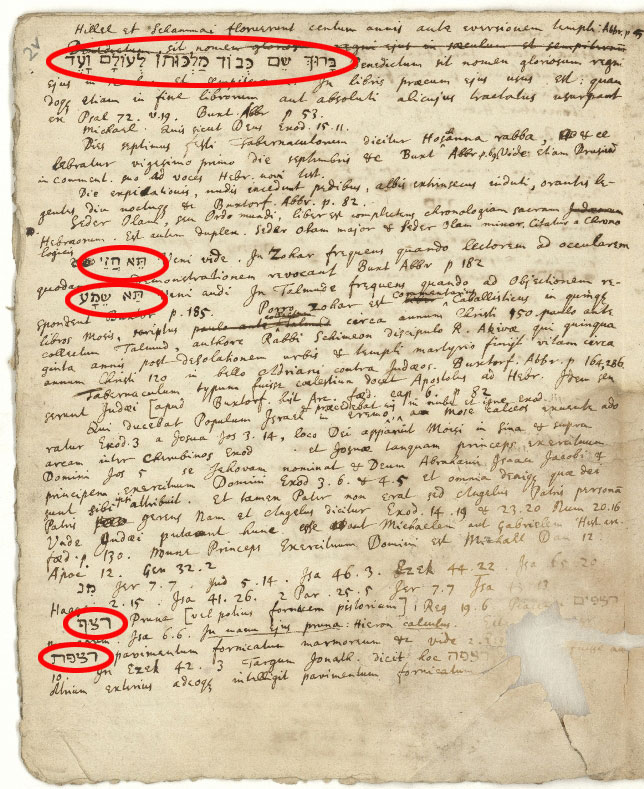 Hillel et Schammai floruerunt centum annis ante eversionem templi. Abbr. p
Benedictum sit nomen glorios regni ejus in sæculum et sempiternum
בָּרוּךְ שֵׁם כְּבוֹד מַלְכוּתוֹ לְעוֹלָם וָעֶד Benedictum sit nomen gloriosum regni
ejus in In libris precum ejus usus est: quan
doqꝫ etiam in fine librorum aut absoluti alicujus tractatus usurpant
ex Psal 72. v.19. Buxt Abbr p 53.
Michael. Quis sicut Deus Exod. 15.11.
Dies septimus festi Tabernaculorum dicitur Hosanna rabba, & ce
lebratur vigesimo primo die septembris &c Buxt Abbr p. Vide etiam Drusium
in comment. suo ad voces Hebr. novi test.
Die expiationis, nudis incedunt pedibus, albis extrinsecus induti, orantis le-
gentes diu noctuqꝫ &c Buxtorf. Abbr. p. 82.
Seder Olam, seu Ordo mundi, liber est complectens chronologiam sacram
Hebræorum. Est autem duplex. Seder Olam major & Seder Olam minor. Citatur a Chrono
logicis
תָּא חֲזֵי Veni vide. In Zohar frequens quando lectorem ad occularem
quodam demonstrationem revocant Buxt Abbr p 182
תָּא שְׁמַע Veni audi In Talmude frequens quando ad Objectionem re-
spondent Buxt p. 185. Porro Zohar est commentarius Cabbalisticus in quinqꝫ
libros Mosis, scriptus paulo ante Talmud circa annum Christi 150 paulo ante
collectum Talmud, authore Rabbi Schimeon discipulo R. Akivæ qui quinqua
ginta annis post desolationem urbis & templi martyrio finijt vitam circa
annum Christi 120 in bello Adriani contra Judæos. Buxtorf. Abbr. p 164, 286.
Tabernaculum typum fuisse cælestium docet Apostolus ad Hebr. Idem sen
serunt Judæi [apud Buxtorf. hist Arc. fœd. cap. 6. p 82
Qui ducebat Populum Israel in eremo, & præcedebat eos in nube et igne, Exod
more calceos exuente ado
ratur Exod. 3 a Josua Jos 3. 14, loco Dei apparuit Mosi in Sina & supra
arcam inter Cherubinos Exod et Josuæ tanquam princeps exercituum
Domini Jos 5 se Jehovam nominat & Deum Abrahami Isaaci Jacobi &
principem exercituum Domini Exod 3. 6. & 4.5 et omnia deniqꝫ quæ dei
sunt sibi attribuit. Et tamen Pater non erat sed Angelus Patris personā
Patris gerens Nam et Angelus dicitur Exod. 14. 19 & 23.20 Num 20.16
Unde Judæi putarunt hunc esse aut Michaelem aut Gabrielem Hist arc.
fœd. p 130. Nunc Princeps Exercituum Domini est Michael Dan 12.
Apoc 12. Gen 32.2
מנ Jer 7.7. Jud 5.14. Isa 46.3. Ezek 44.22. Isa 65.20
Hagg. 2.15. Isa 41.26. 2 Par 25.5 Jer 7.7 Isa
רצף Pruna [vel potius fornicem pistorium] 1 Reg 19.6 רצפים
Isa 6.6. In manu ejus pruna. Hieron calculus. Est
רצפת pavimentum fornicatum marmoreum & vide 2
10. In Ezek 42. 3 Targum Jonath. dicit hoc רצפה
Atrium exterius adeoqꝫ intelligit pavimentum fornicatum